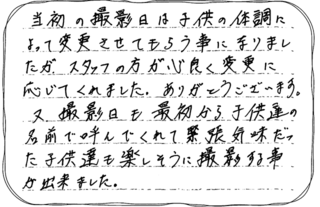 当初の撮影日は子供の体調に
よって変更させてもらう事になりまし
たが、スタッフの方が心良く変更に
応じてくれました。ありがとうございます。
又、撮影日も最初から子供達の
名前で呼んでくれて緊張気味だっ
た子供達も楽しそうに撮影する事
が出来ました。